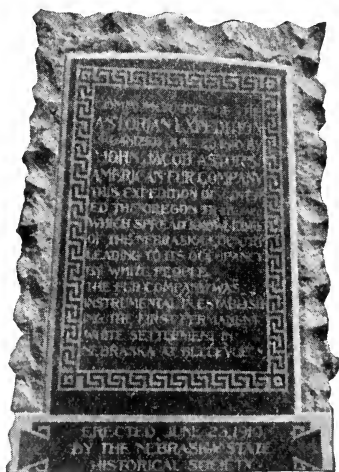 ASTORIAN EXPEDITION
JOHN JACOB ASTOR'S
AMERICAN FUR COMPANY
THIS EXPEDITION
ED THE OREGON
WHICH SPREAD KNOWLEDGE
OF THE NEBRASKA COUNTRY
LEADING TO ITS OCCUPANCY
BY WHITE PEOPLE
THE FUR COMPANY WAS
INSTRUMENTAL IN ESTABLISH
ING THE FIRST PERMANENT
WHITE SETTLEMENT IN
NEBRASKA AT BELLEVUE
ERECTED JUNE 23, 1910
BY THE NEBRASKA STATE
HISTORICAL SOCIETY